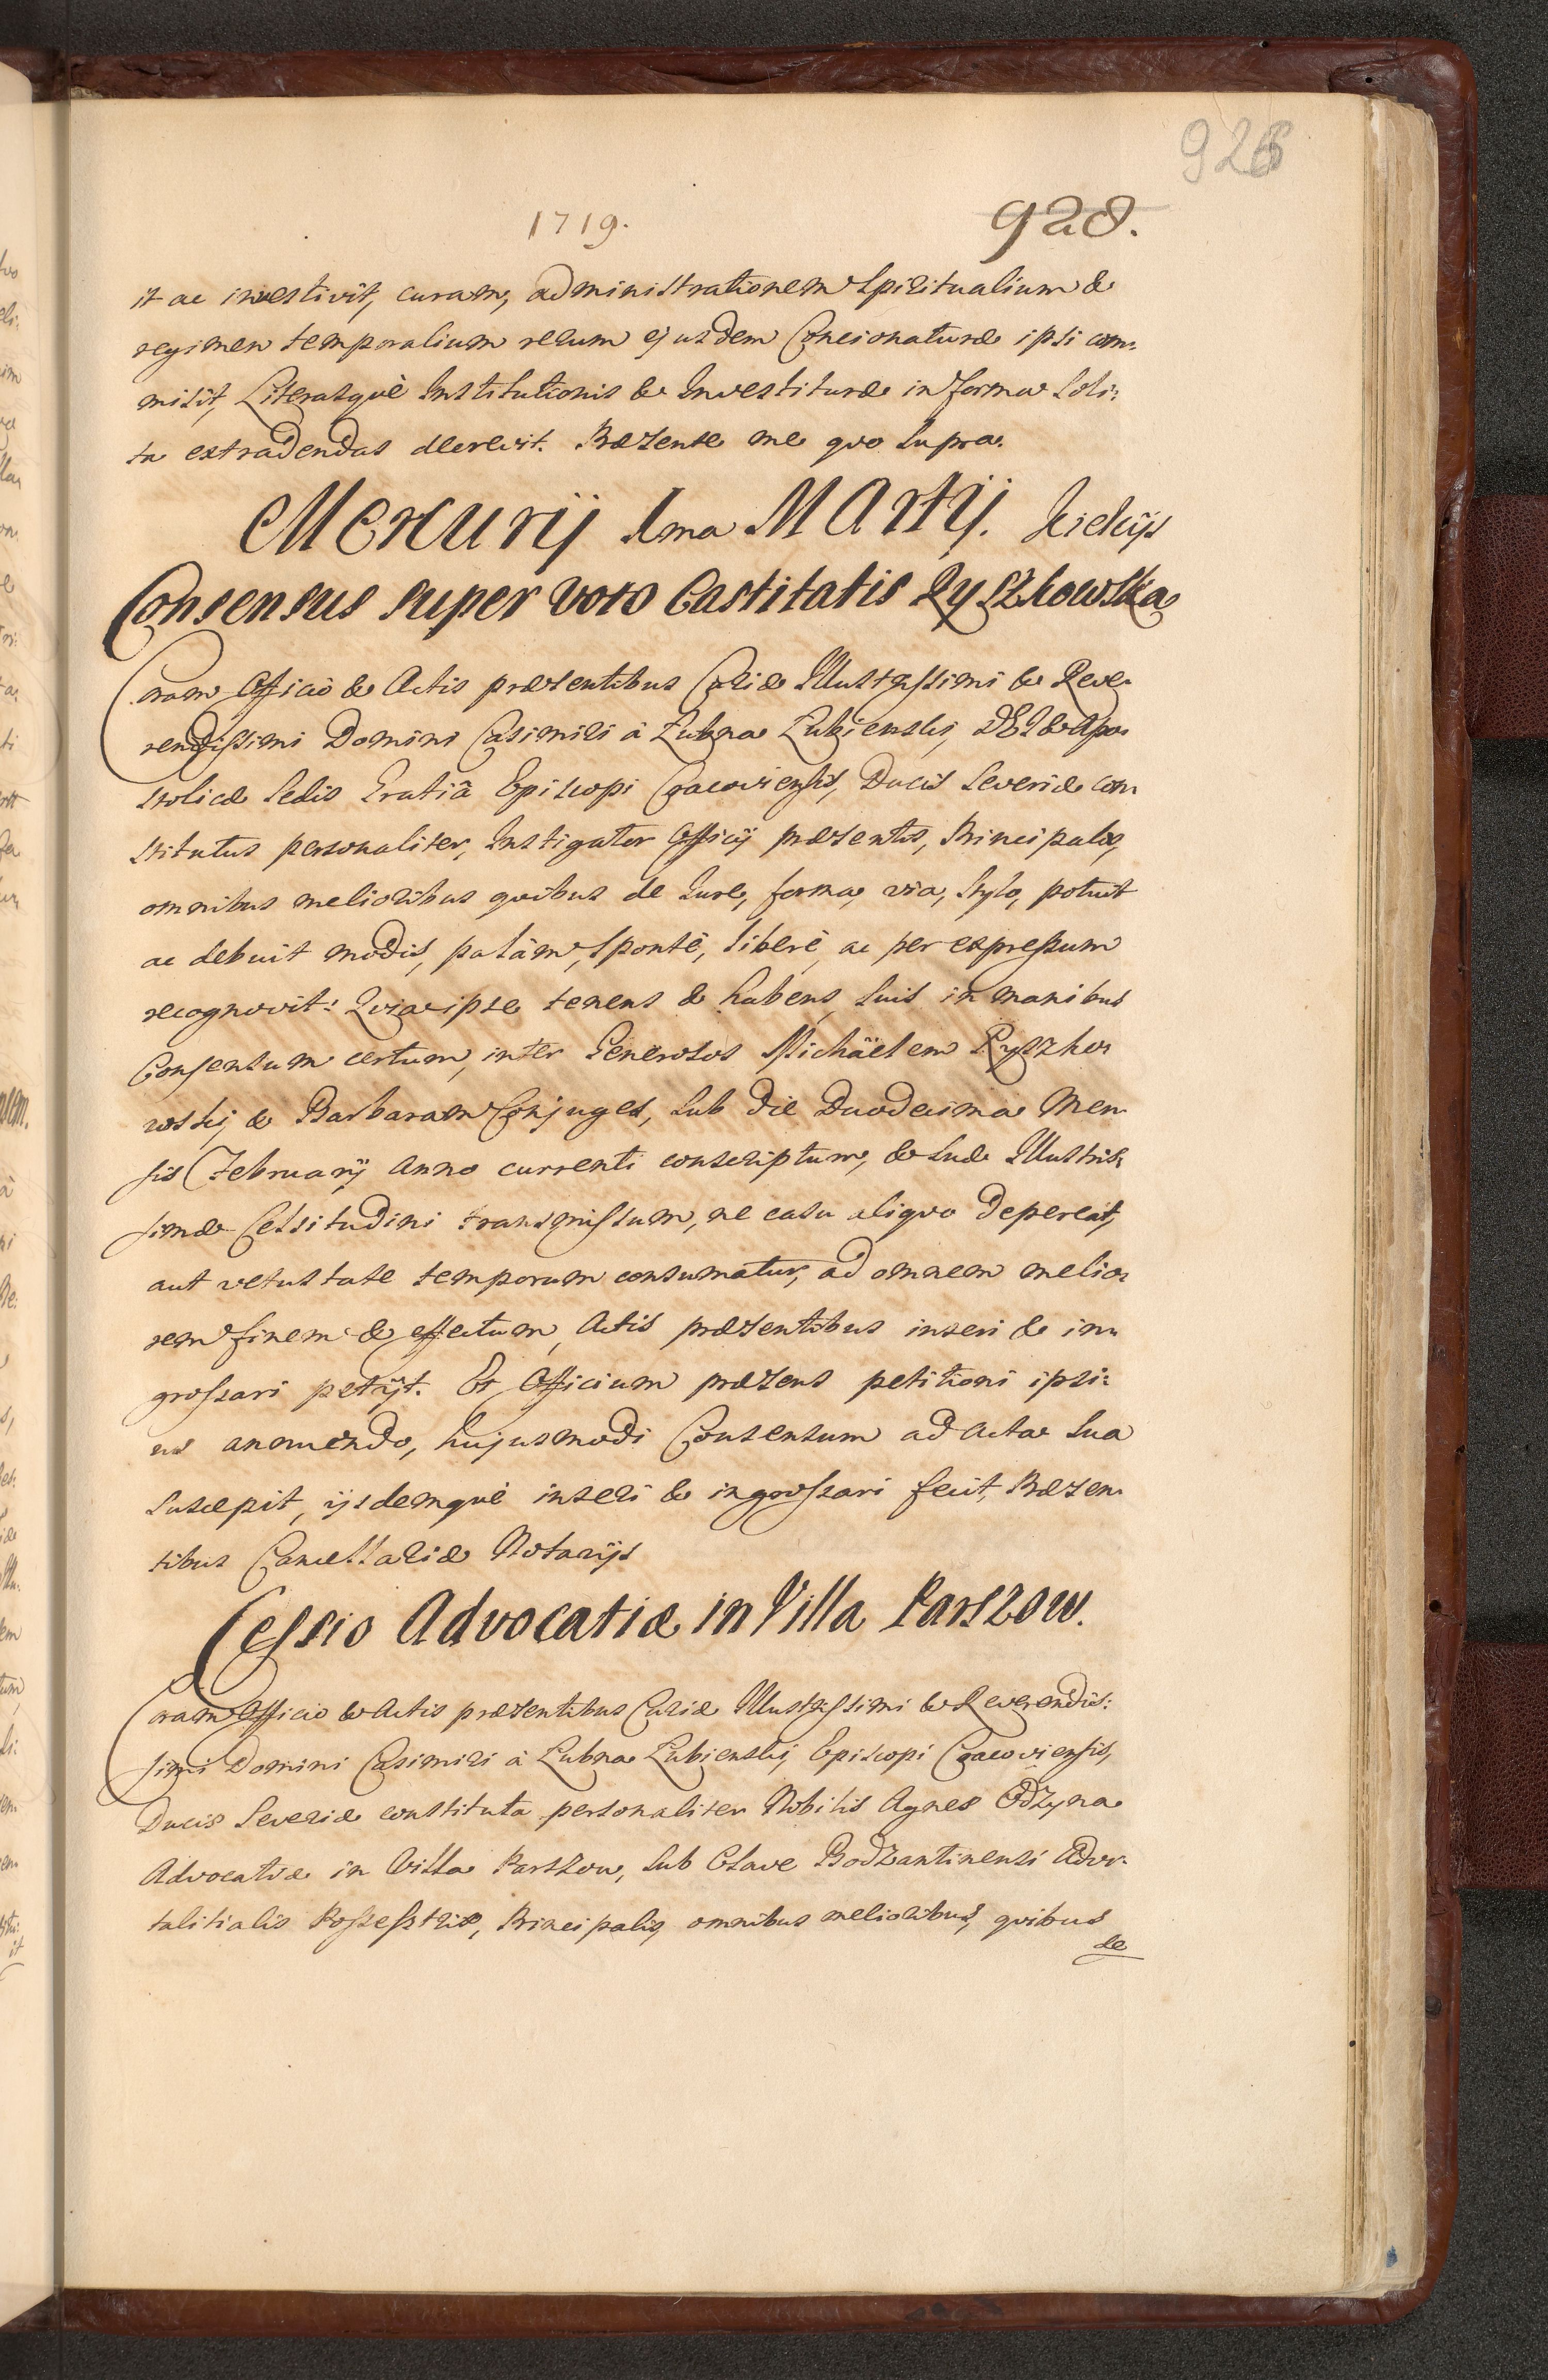 926
1719.
928.
it ac investivit, curam, administrationem Spiritualium &
regimen temporalium rerum ejusdem Concionaturæ ipsi com:
misit, Literasquè Institutionis & Investituræ in forma Soli:
ta extradendas decrevit. Præsente me quo Supra.
Mercurij 1ma Martij. Kielcijs
Consensus super voto Castitatis Ryszkowska
Coram Officio & Actis præsentibus Curiæ Illustrissimi & Reve:
rendissimi Domini Casimiri à Łubna Łubienski, D E I & Apo:
stolicæ Sedis Gratiâ Episcopi Cracoviensis, Ducis Severiæ con:
stitutus personaliter, Instigator Officij præsentis, Principalis,
omnibus melioribus quibus de Jure, forma, via, Stylo, potuit
ac debuit modis, palàm, Spontè, liberè, ac per expressum
recognovit: Quia ipse tenens & habens Suis in manibus
Consensum certum, inter Generosos Michäelem Ryszko:
wski, & Barbaram Conjuges, Sub die Duodecima Men:
sis February Anno currenti conscriptum, & Suæ Illustris:
simæ Celsitudini transmissum, ne casu aliquo depereat,
aut vetustate temporum consumatur, ad omnem melio:
rem finem & effectum, Actis præsentibus inseri & in:
grossari petijt. Et Officium præsens petitioni ipsi:
us annuendo, hujusmodi Consensum ad Acta Sua
Suscepit, ijsdemquè inseri & ingrossari fecit, Præsen:
tibus Cancellariæ Notarijs
Cessio Advocatiæ in Villa Parszow.
Coram Officio & Actis præsentibus Curiæ Illustrissimi & Reverendis:
simi Domini Casimiri à Łubna Łubienski, Episcopi Cracoviensis,
Ducis Severiæ constituta personaliter Nobilis Agnes Odzyna
Advocatiæ in Villa Parszow, Sub Clave Bodzantinensi Advi:
talitialis Possessrix, Principalis, omnibus melioribus, quibus
de